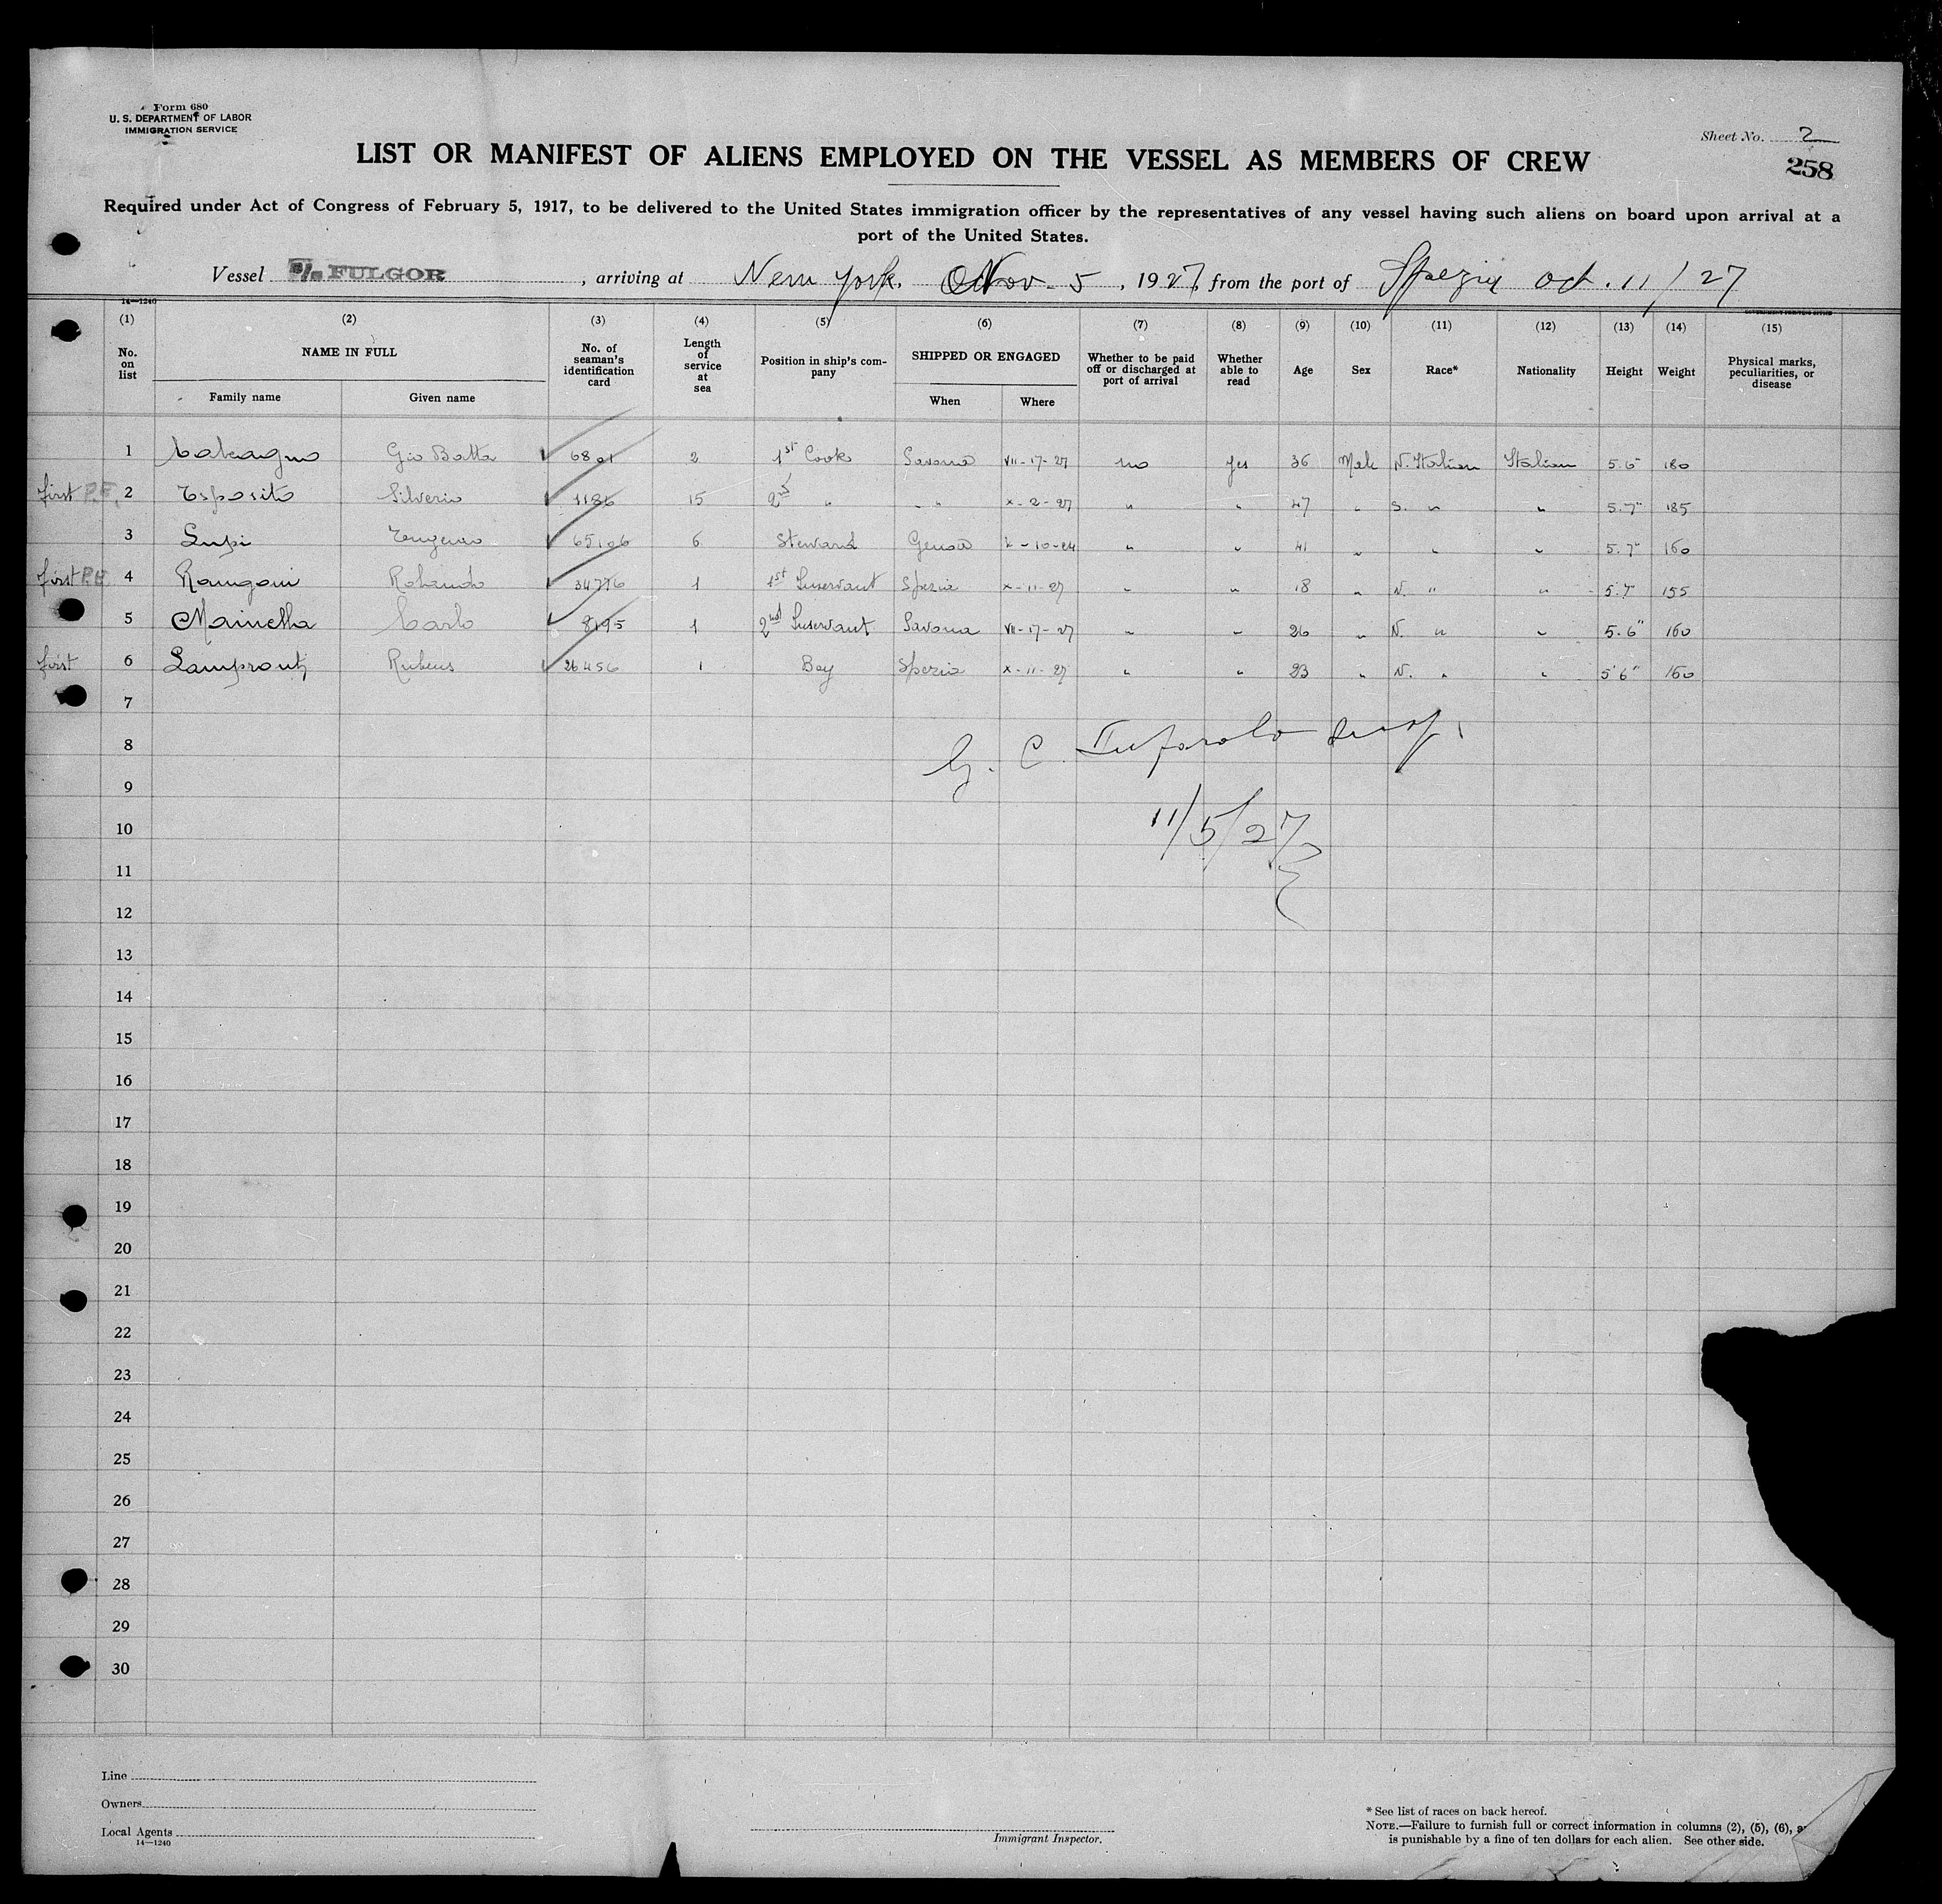 Form 680
U. S. DEPARTMENT OF LABOR
IMMIGRATION SERVICE
Sheet No. 2
LIST OR MANIFEST OF ALIENS EMPLOYED ON THE VESSEL AS MEMBERS OF CREW
258
Required under Act of Congress of February 5, 1917, to be delivered to the United States immigration officer by the representatives of any vessel having such aliens on board upon arrival at a
port of the United States.
Vessel S/S FULGOR, arriving at New York. Nov. 5, 1927, from the port of Spezia Oct. 11/27
14—1240
(1) (2) (3) (4) (5) (6) (7) (8) (9) (10) (11) (12) (13) (14) (15)
No. on list NAME IN FULL Family name Given name No. of seaman's identification card Length of service at sea Position in ship's company SHIPPED OR ENGAGED When Where Whether to be paid off or discharged at port of arrival Whether able to read Age Sex Race* Nationality Height Weight Physical marks, peculiarities, or disease
1 Gio Batta 6801 2 1st Cook Savona VII-17-27 no yes 36 Male N. Italian Italian 5.6" 180
first P.E. 2 Esposito Silverio 1186 15 2nd " " " X-2-27 " " 47 " S. " " 5.7" 185
3 Lupi Eugenio 65106 6 Steward Genoa X-10-24 " " 41 " " " 5.7" 160
first P.E. 4 Rangoni Rolando 34776 1 1st Spezia X-11-27 " " 18 " N. " " 5.7" 155
5 Mainetta Carlo 8195 1 2nd Savona VII-17-27 " " 26 " N. " " 5.6" 160
first 6 Rubens 26456 1 Boy Spezia X-11-27 " " 23 " N. " " 5'6" 160
7
8
G. C. Insp.
9
10
11/5/27
11
12
13
14
15
16
17
18
19
20
21
22
23
24
25
26
27
28
29
30
Line
Owners
Local Agents
14—1240
Immigrant Inspector.
* See list of races on back hereof.
NOTE.—Failure to furnish full or correct information in columns (2), (5), (6),
is punishable by a fine of ten dollars for each alien. See other side.